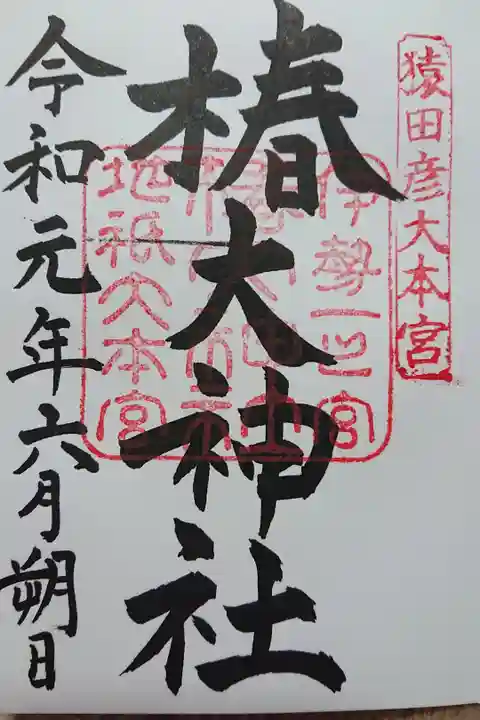 猿田彦大本宮
椿大神社
伊勢一之宮
椿大神社
地祇大本宮
令和元年六月朔日